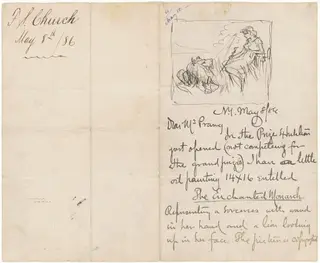 F. S. Church
May 8th/86
N.Y. May 8/86
Dear Mr Prang
In the Prize Exhibition
just opened (not competing for
the grand prize) I have a little
oil painting 14x16 entitled
The Enchanted Monarch
Representing a sorceress with wand
in her hand and a lion looking
up in her face. The picture is